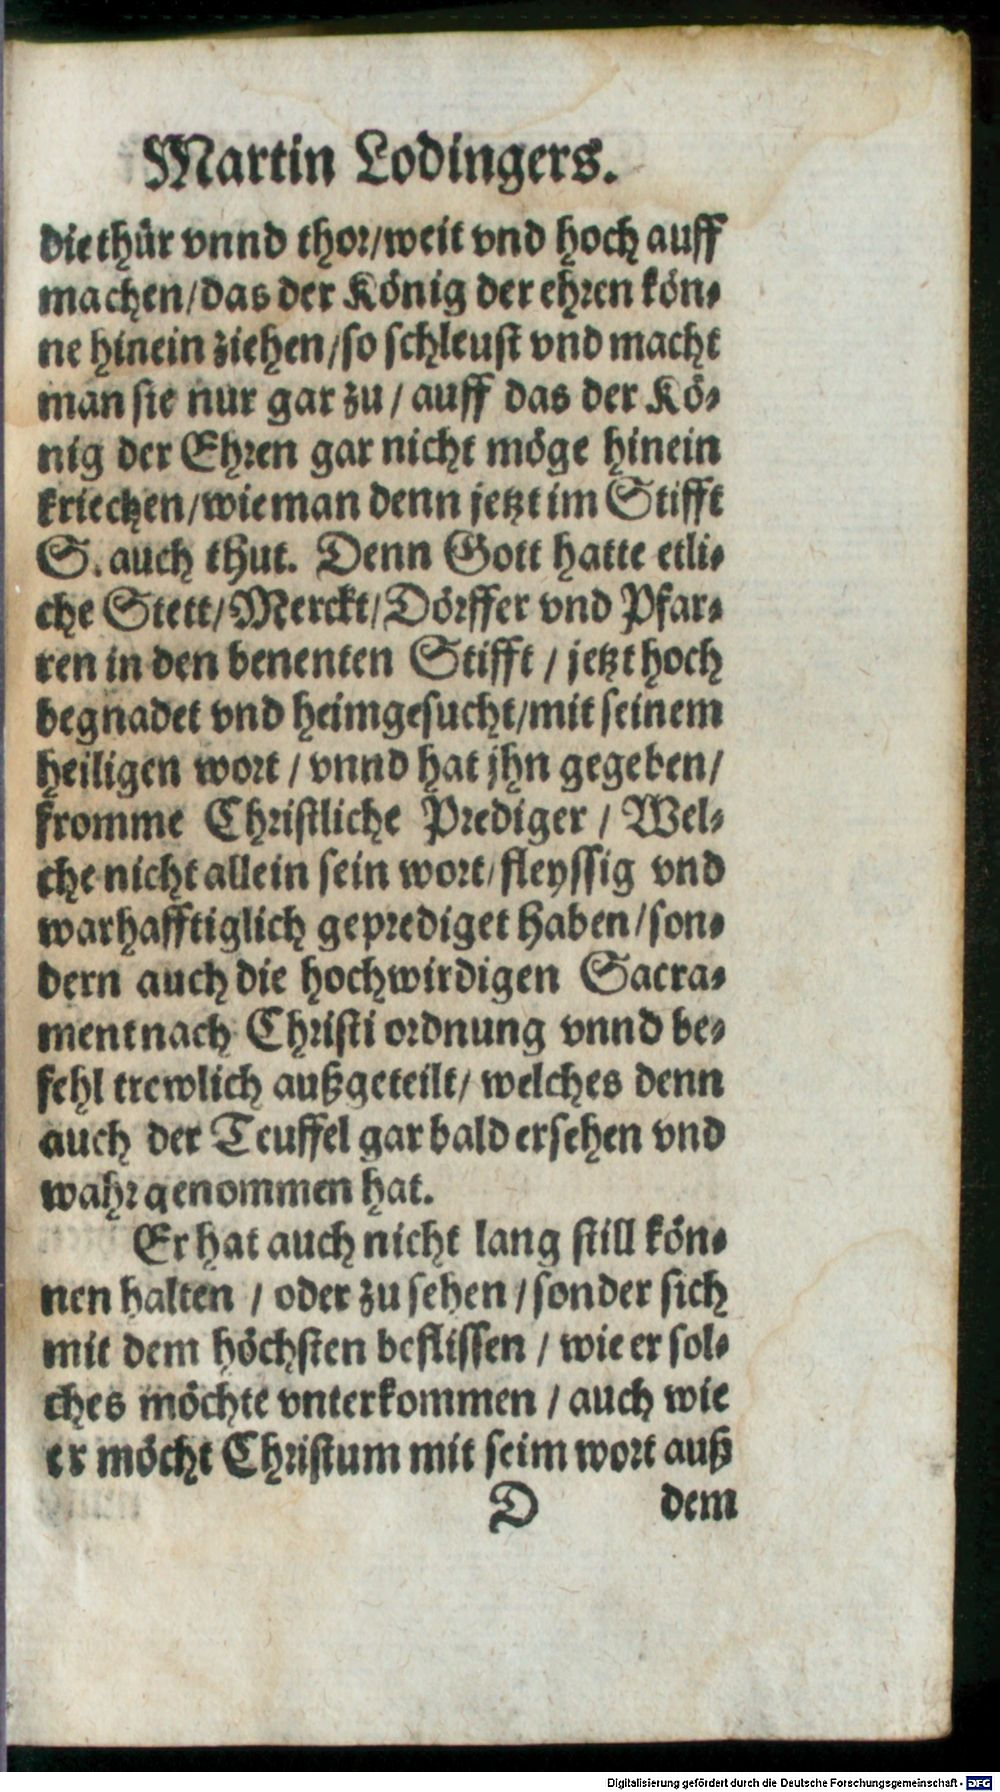 Martin Lodingers.
die thür vnnd thor/weit vnd hoch auff
machen/das der König der ehren kön⸗
ne hinein ziehen/so schleust vnd macht
man sie nur gar zu/ auff das der Kö⸗
nig der Ehren gar nicht möge hinein
kriechen/wie man denn jetzt im Stifft
S. auch thut. Denn Gott hatte etli⸗
che Stett/Merckt/Dörffer vnd Pfar⸗
ren in den benenten Stifft / jetzt hoch
begnadet vnd heimgesucht/mit seinem
heiligen wort / vnnd hat jhn gegeben/
fromme Christliche Prediger / Wel⸗
che nicht allein sein wort/fleyssig vnd
warhafftiglich geprediget haben/son⸗
dern auch die hochwirdigen Sacra⸗
ment nach Christi ordnung vnnd be⸗
fehl trewlich außgeteilt/ welches denn
auch der Teuffel gar bald ersehen vnd
wahr genommen hat.
Er hat auch nicht lang still kön⸗
nen halten / oder zu sehen/sonder sich
mit dem höchsten beflissen / wie er sol⸗
ches möchte vnterkommen / auch wie
er möcht Christum mit seim wort auß
D dem
Digitalisierung gefördert durch die Deutsche Forschungsgemeinschaft - DFG